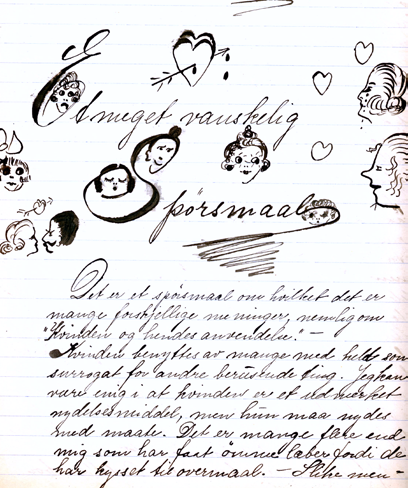 Et meget vanskelig
spörsmaal
Det er et spörsmaal om hvilket det er
mange forskjellige meninger, nemlig om
"Kvinden og hendes anvendelse." —
Kvinden benyttes av mange med held som
surrogat for andre berusende ting. Jeg kan
være enig i at kvinden er et udmerket
nydelsesmiddel, men hun maa nydes
med maate. Det er mange flere end
mig som har faat ömme læber fordi de
har kysset til overmaal. — Slike men-